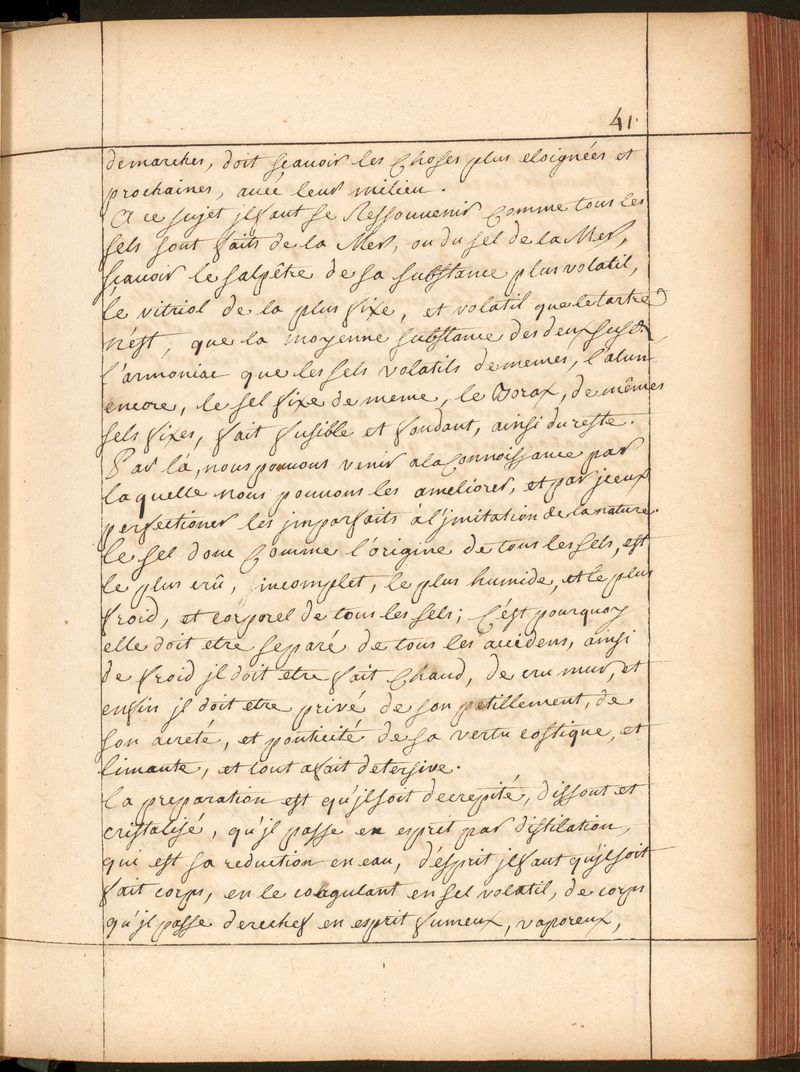 41.
demarches, doit sçauoir les Choses plus eloignées et
prochaines, auec leur milieu.
A ce sujet jl faut se Ressouuenir Comme tous les
sels sont faits de la Mer, ou du sel de la Mer,
sçauoir le salpêtre de sa substance plus volatil,
le vitriol de la plus fixe, et volatil que le tartre
n'est, que la moyenne substance des deux susd.
l'armoniac que les sels volatils de memes, l'alun
encore, le sel fixe de meme, le Borax, de mêmes
sels fixes, fait fusible et fondant, ainsi du reste.
Par là, nous pouuons venir a la Connoissance par
laquelle nous pouuons les ameliorer, et par jceux
perfectioner les jmparfaits à l'jmitation de la nature.
le sel donc Comme l'origine de tous les sels, est
le plus crû, incomplet, le plus humide, et le plus
froid, et corporel de tous les sels; C'est pourquoy
elle doit etre separé de tous les accidens, ainsi
de froid jl doit etre fait Chaud, de cru mur, et
enfin jl doit etre privé de son petillement, de
son acreté, et ponticité de sa vertu costique, et
limante, et tout a fait detersive.
la preparation est qu'jl soit decrepité, dissout et
cristalisé, qu'jl passe en esprit par distilation,
qui est sa reduction en eau, d'ésprit jl faut qu'jl soit
fait corps, en le coagulant en sel volatil, de corps
qu'jl passe derechef en esprit fumeux, vaporeux,